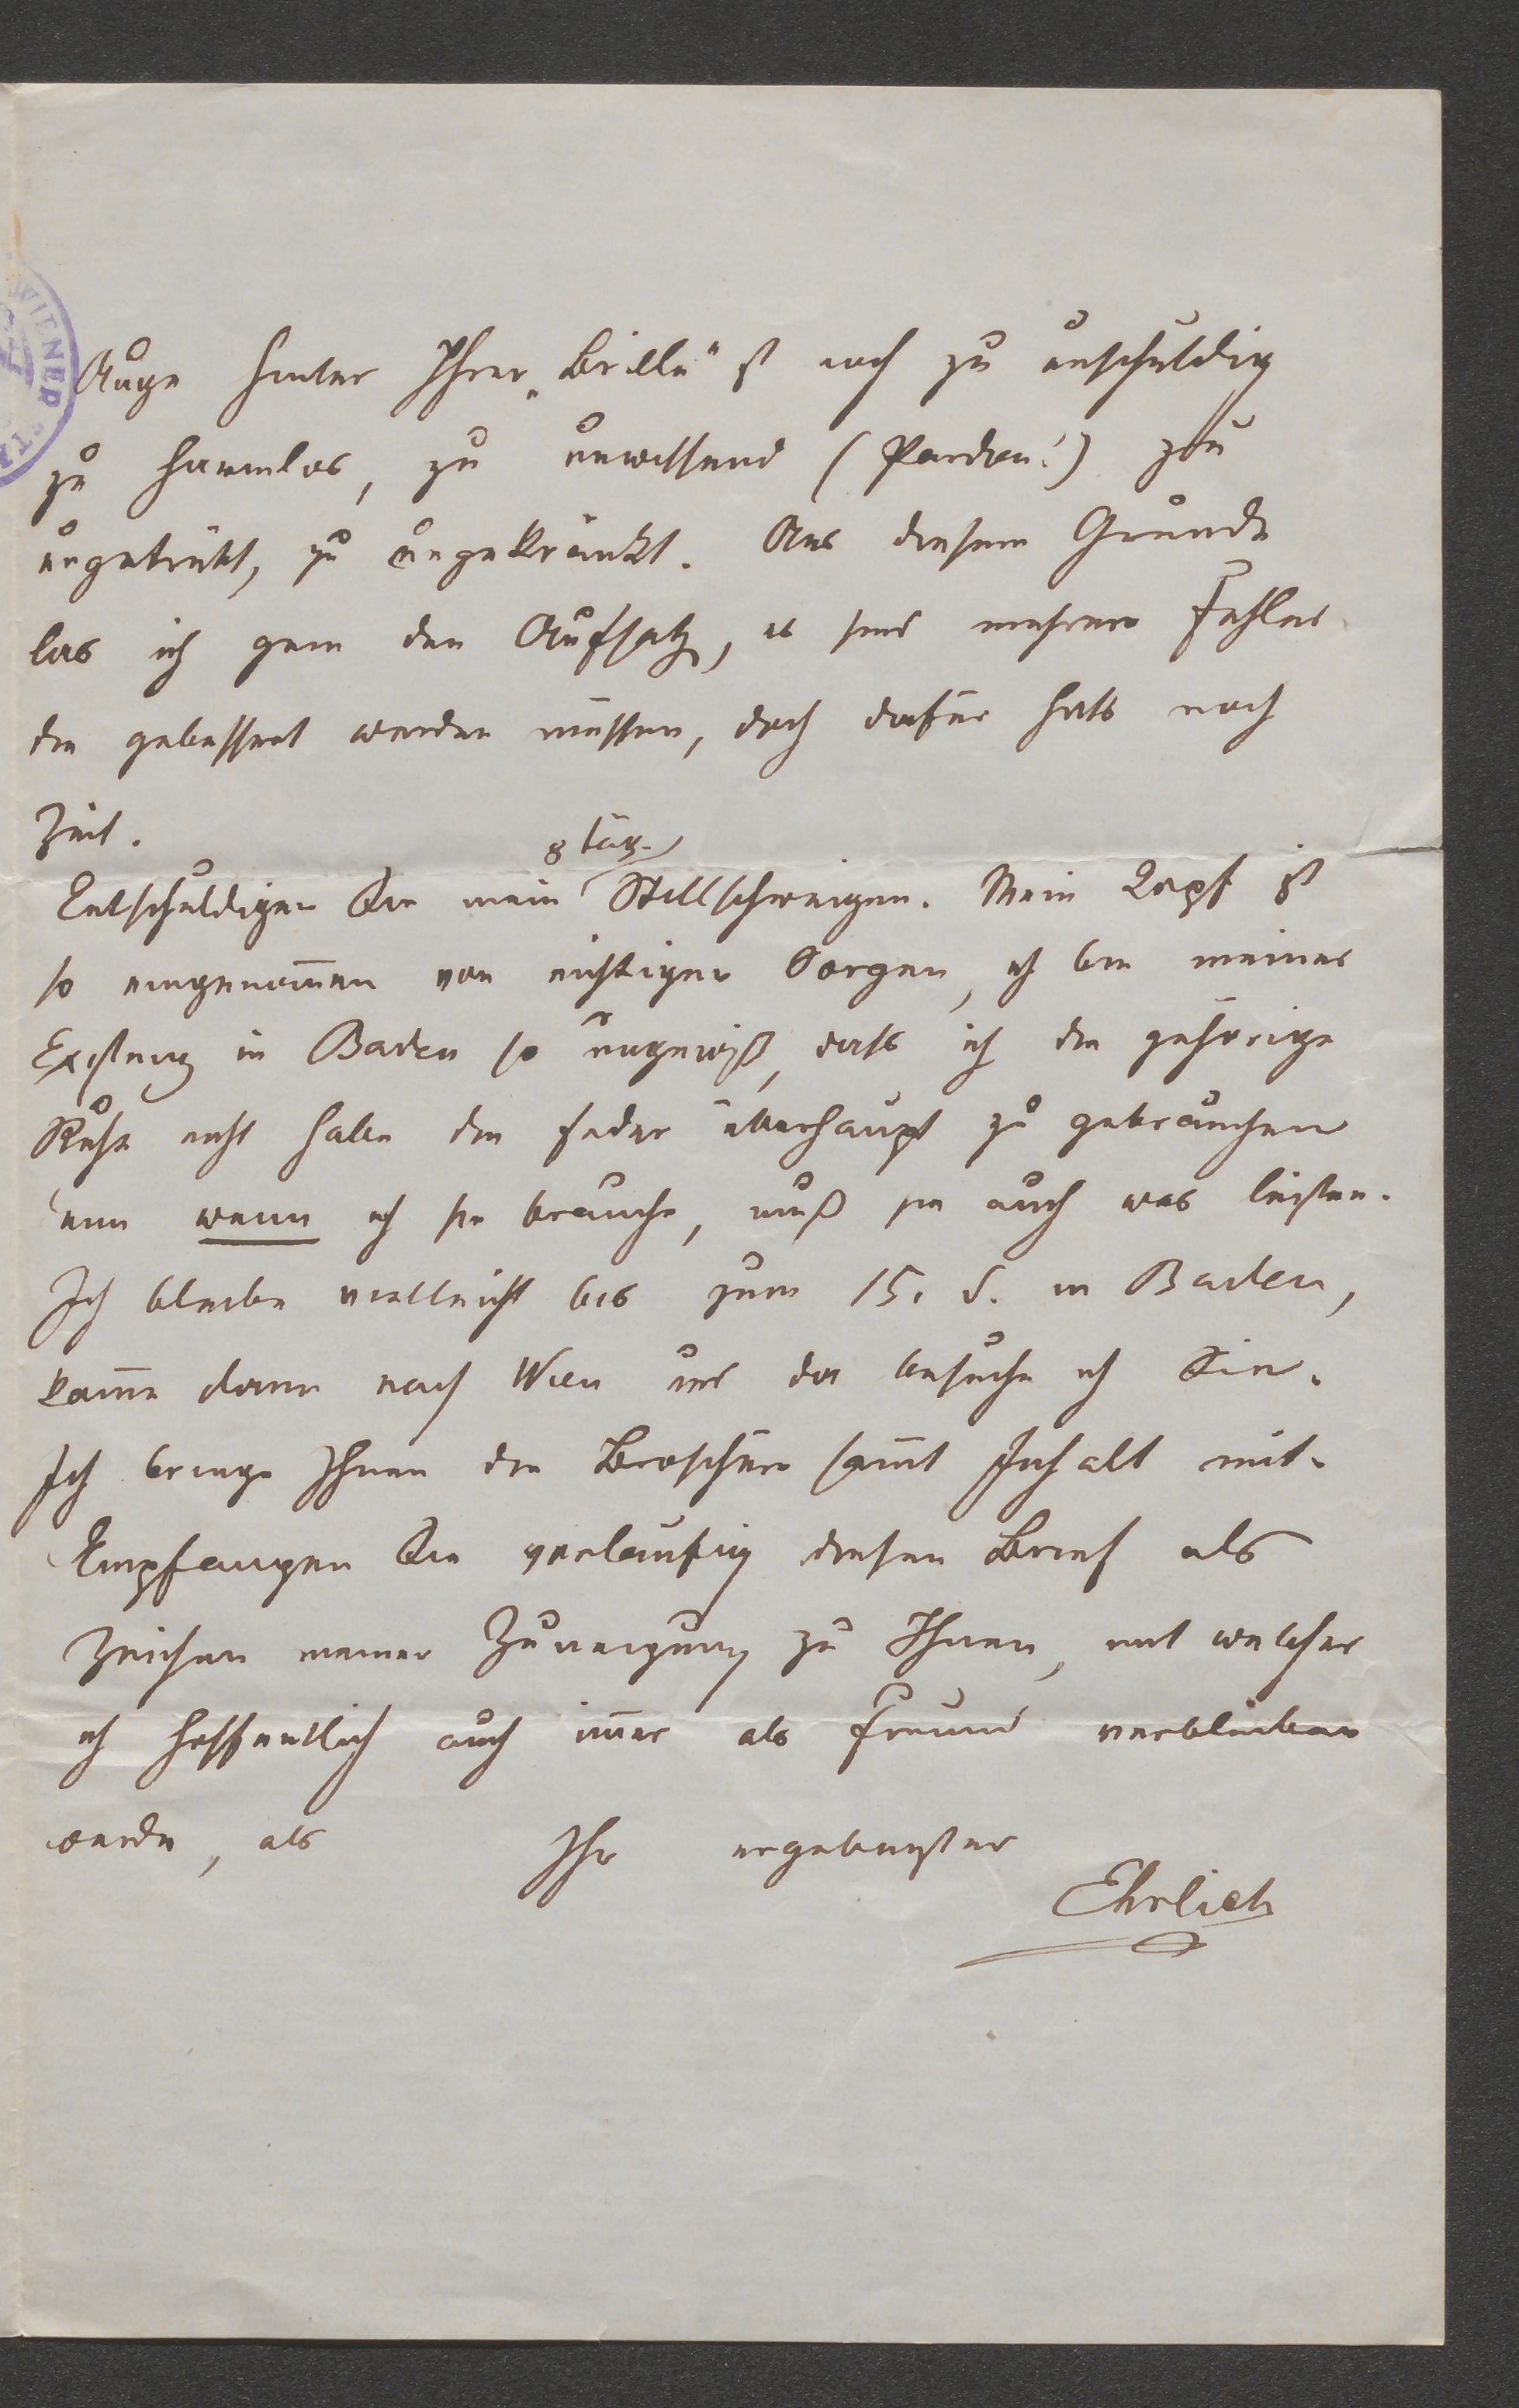 WIENER
Auge hinter Ihrer „Brille“ ist noch zu unschuldig
zu harmlos, zu unwissend (Pardon!) zu
ungetrübt, zu ungekränkt. Aus diesem Grunde
las ich gern den Aufsatz, es sind mehrere Fehler
die gebessert werden müssen, doch dafür hats noch
Zeit.
8 täg.
Entschuldigen Sie mein Stillschweigen. Mein Kopf ist
so eingenom̄en von nichtigen Sorgen, ich bin meiner
Existenz in Baden so ungewiß, dass ich die gehörige
Ruhe nicht habe die Feder überhaupt zu gebrauchen
denn wenn ich sie brauche, muß sie auch was leisten.
Ich bleibe vielleicht bis zum 15. d. in Baden,
kom̄e dann nach Wien und da besuche ich Sie.
Ich bringe Ihnen die Broschüre sam̄t Inhalt mit.
Empfangen Sie vorläufig diesen Brief als
Zeichen meiner Zuneigung zu Ihnen, mit welcher
ich hoffentlich auch im̄er als Freund verbleiben
werde, als Ihr ergebenster
Ehrlich